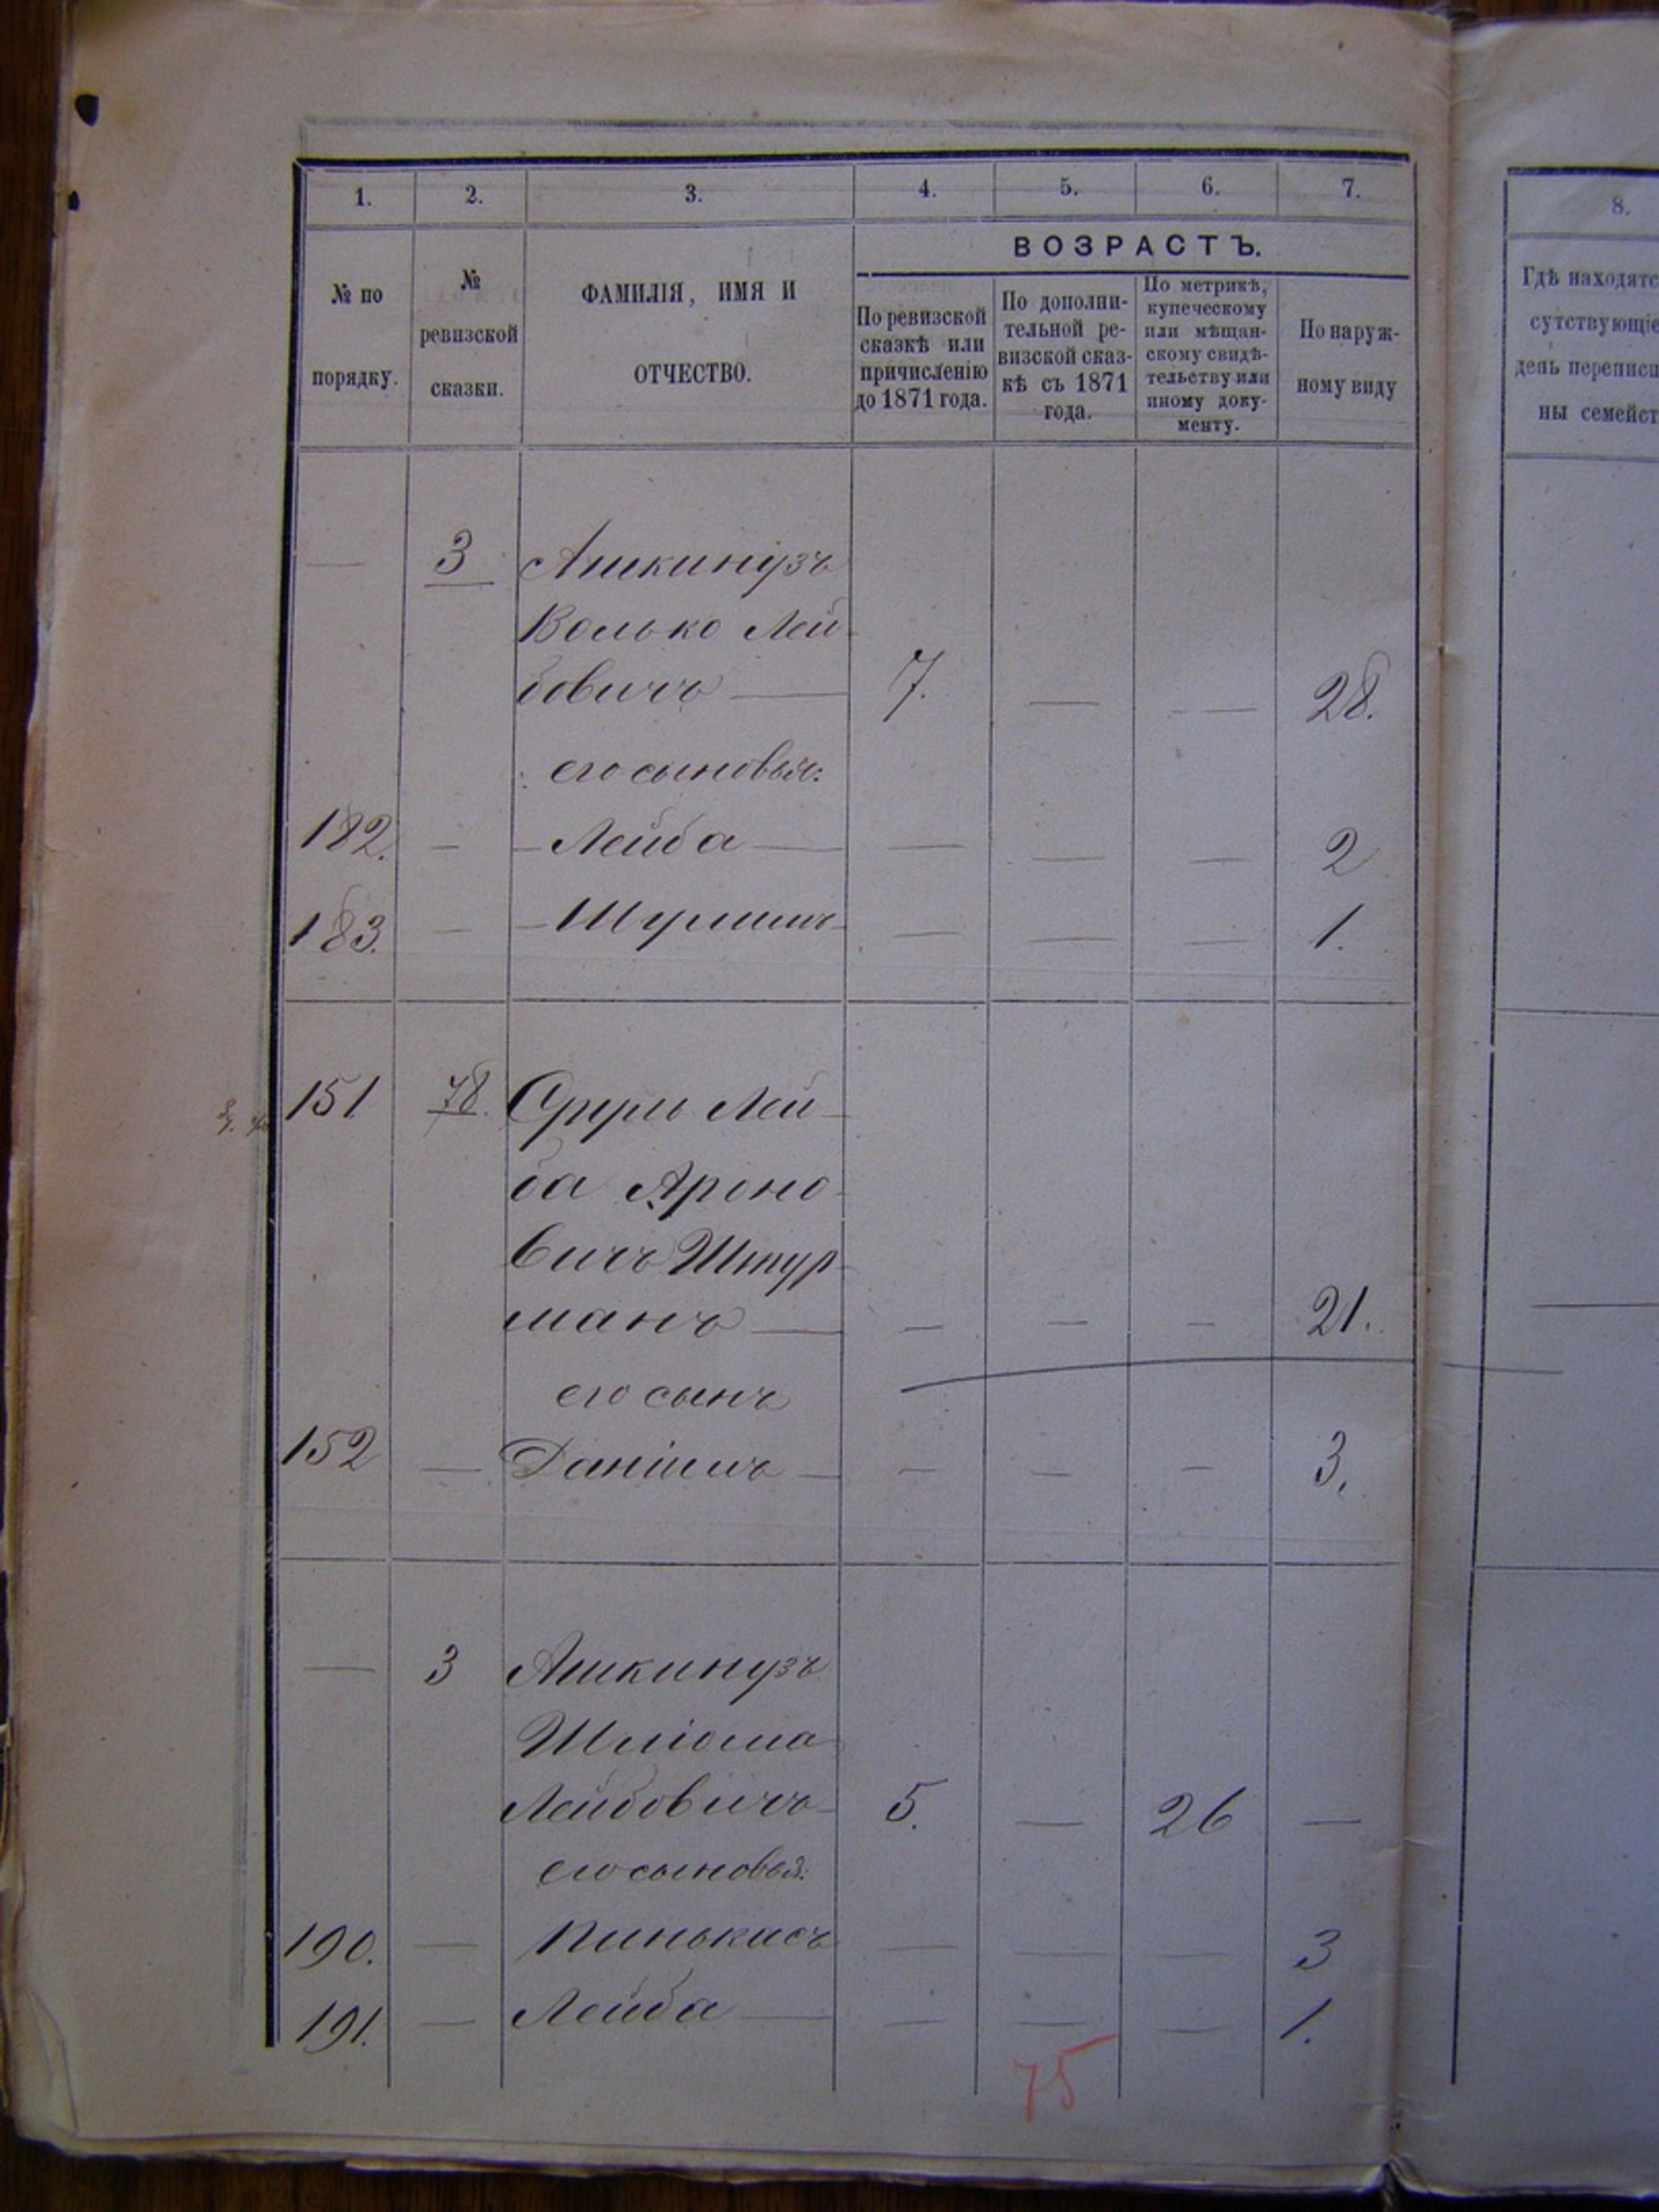 1. 2. 3. 4. 5. 6. 7.
ВОЗРАСТЪ.
№ по
порядку.
№
ревизской
сказки.
ФАМИЛІЯ, ИМЯ И
ОТЧЕСТВО.
По ревизской
сказкѣ или
причисленію
до 1871 года.
По дополни-
тельной ре-
визской сказ-
кѣ съ 1871
года.
По метрикѣ,
купеческому
или мѣщан-
скому свидѣ-
тельству или
иному доку-
менту.
По наруж-
ному виду
— 3 Ашкинузъ
Волько Лей-
бовичъ — 7. — — 28.
его сыновья:
182. — — Лейба — — — — 2
183. — — — — — 1.
151 78. Лей-
ба Ароно-
вичъ Штур-
манъ — — — — 21.
его сынъ
152 — Даніилъ — — — — 3.
— 3 Ашкинузъ
Шліома
Лейбовичъ 5. — 26 —
его сыновья:
190. — Пинькасъ — — — 3
191. — Лейба — — — — 1.
75
8.
Гдѣ находятс
сутствующіе
день переписи
ны семейст